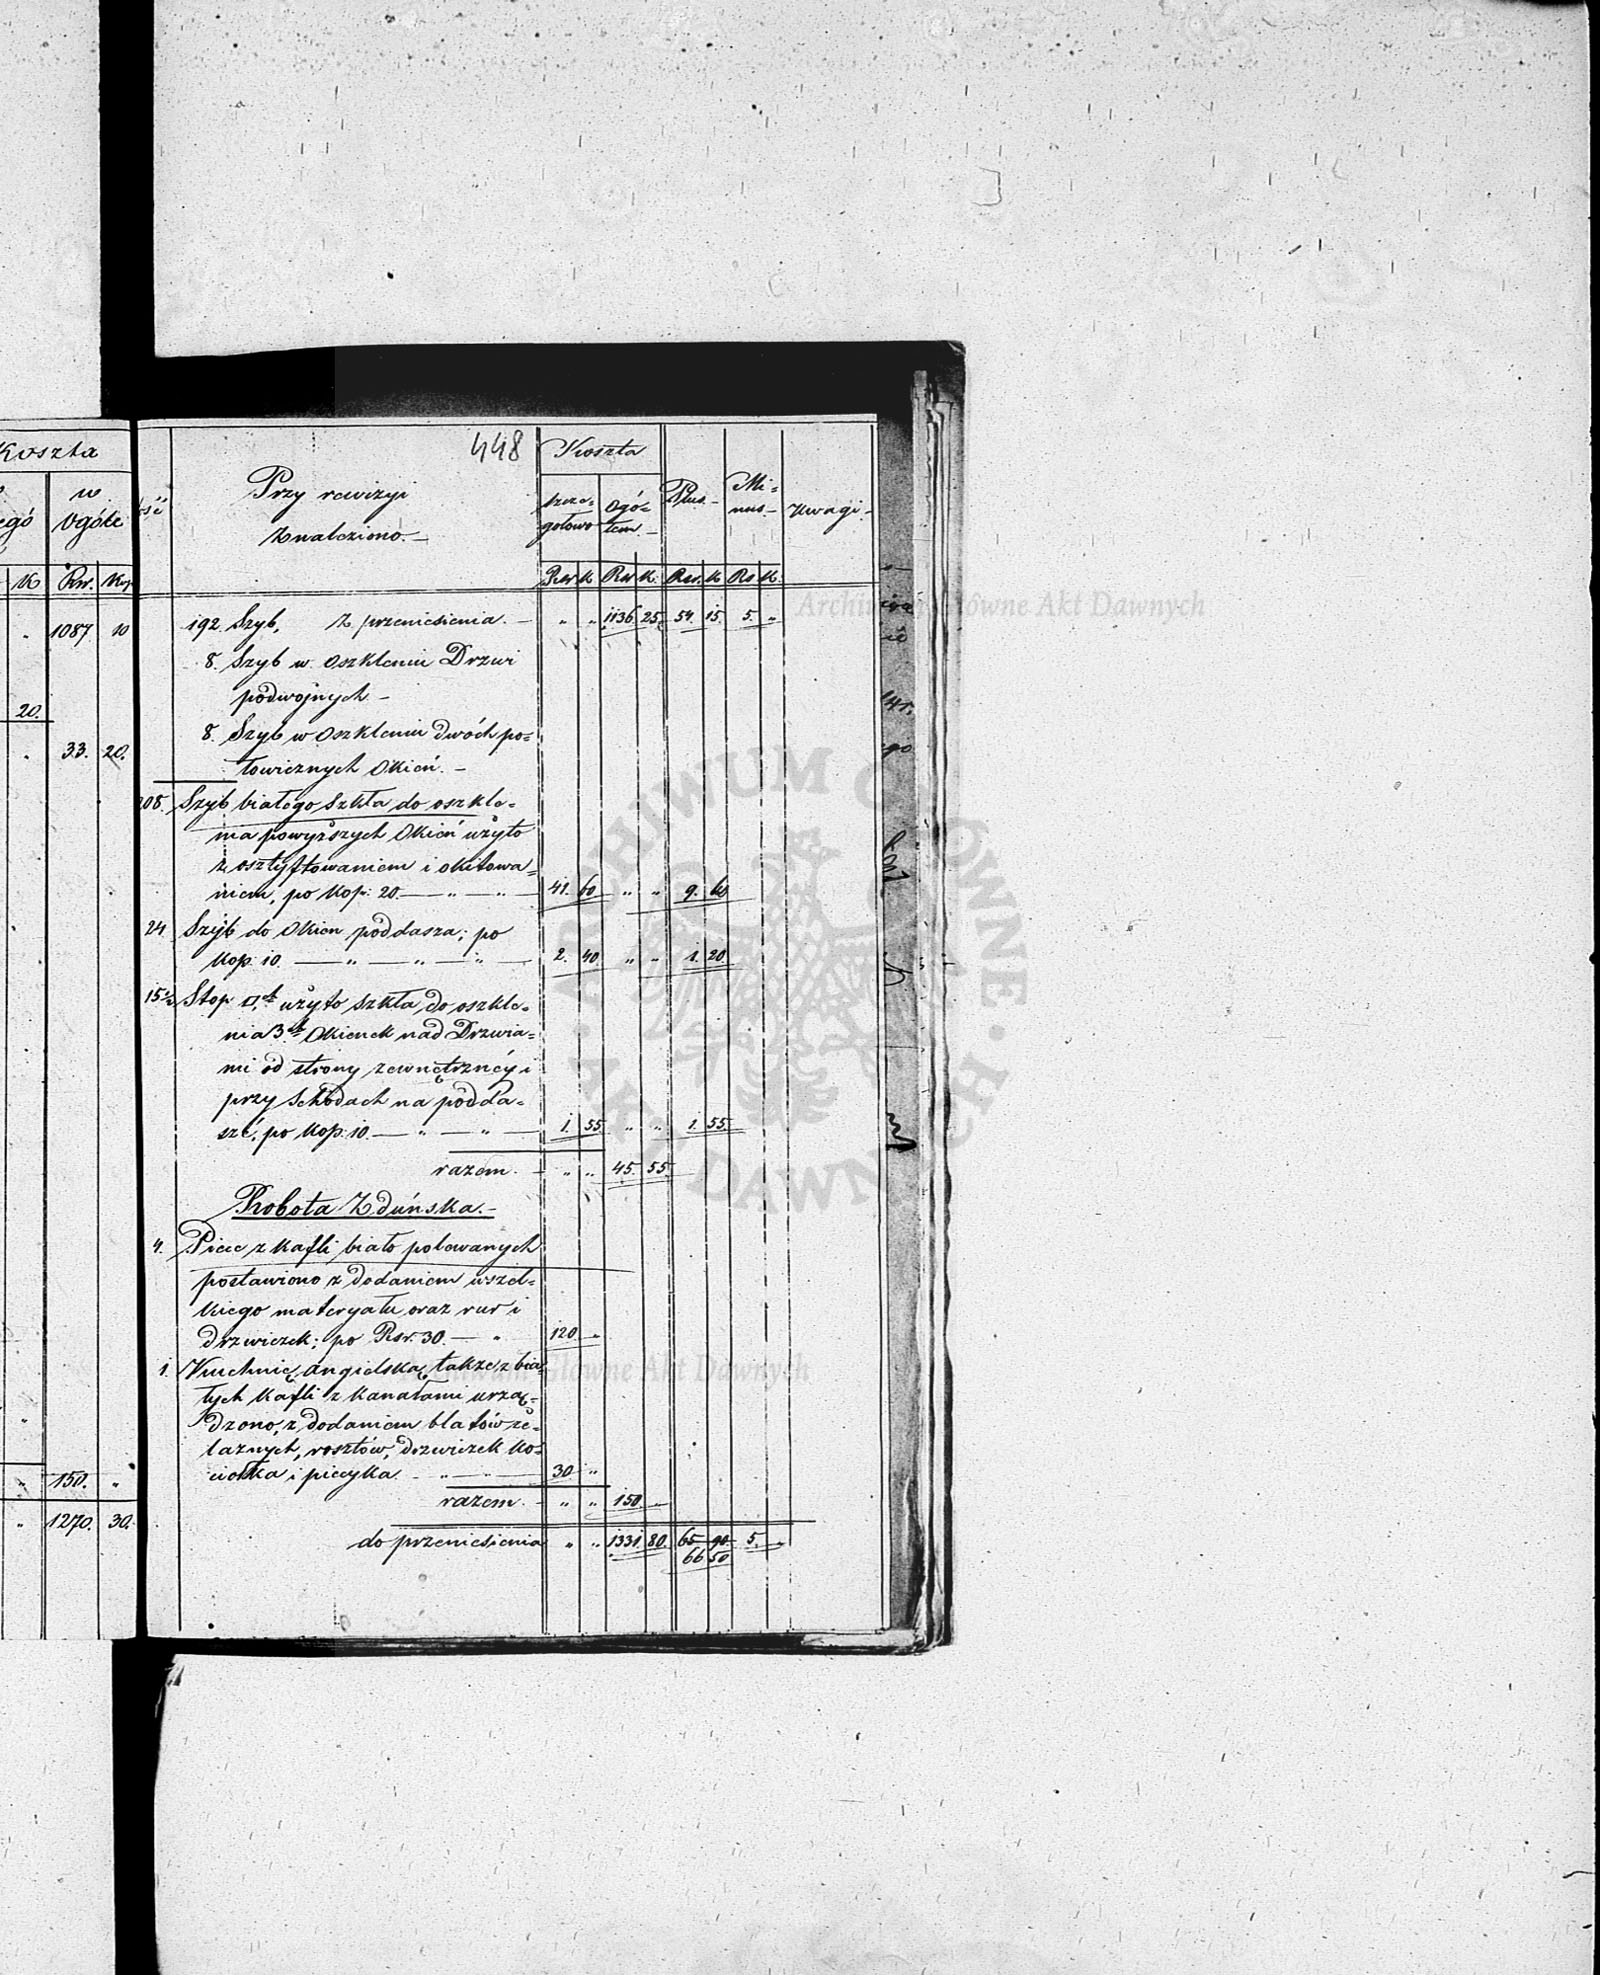 Koszta
w
Ogóle
K Rsr. Kop.
" 1087 10
20.
" 33. 20.
"
" 150. "
" 1270. 30.
448
Przy rewizyi
znaleziono.—
Koszta
szcze-
gołowo
Ogó-
łem.—
Plus.—
Mi-
nus.—
Uwagi.—
Rsr K Rsr K. Rsr. K Rs K.
192 Szyb, Z przeniesienia.— " " 1136 25. 54. 15. 5. "
8. Szyb w oszkleniu Drzwi
podwójnych.—
8. Szyb w oszkleniu dwóch po-
łowicznych Okień.—
208. Szyb białego szkła do oszkle-
nia powyższych Okień użyto
z osztyftowaniem i okitowa-
niem, po kop. 20.— " — " — 41. 60 " " 9. 60
24 Szyb do Okien poddasza; po
kop: 10. — " — " — " — 2. 40. " " 1. 20
15½ Stop □ch użyto szkła, do oszkle-
nia 3ch Okienek nad Drzwia-
mi od strony zewnętrznéy i
przy schodach na podda-
sze; po kop. 10.— " — " — 1. 55. " " 1. 55.
razem.— " " 45. 55.
Robota Zduńska.—
4. Piece z kafli biało polewanych
postawiono z dodaniem wszel-
kiego materyału oraz rur i
drzwiczek; po Rsr. 30.— " 120 "
1. Kuchnię angielską, także z bia-
łych kafli z kanałami urzą-
dzono, z dodaniem blatów że-
laznych, rosztów, drzwiczek ko-
ciołka i piecyka.— " — " — 30. "
razem.— " " 150. "
do przeniesienia " " 1331. 80. 65 90. 5. "
66 50
Archiwum Główne Akt Dawnych
ARCHIWUM GŁÓWNE AKT DAWNYCH
Archiwum Główne Akt Dawnych